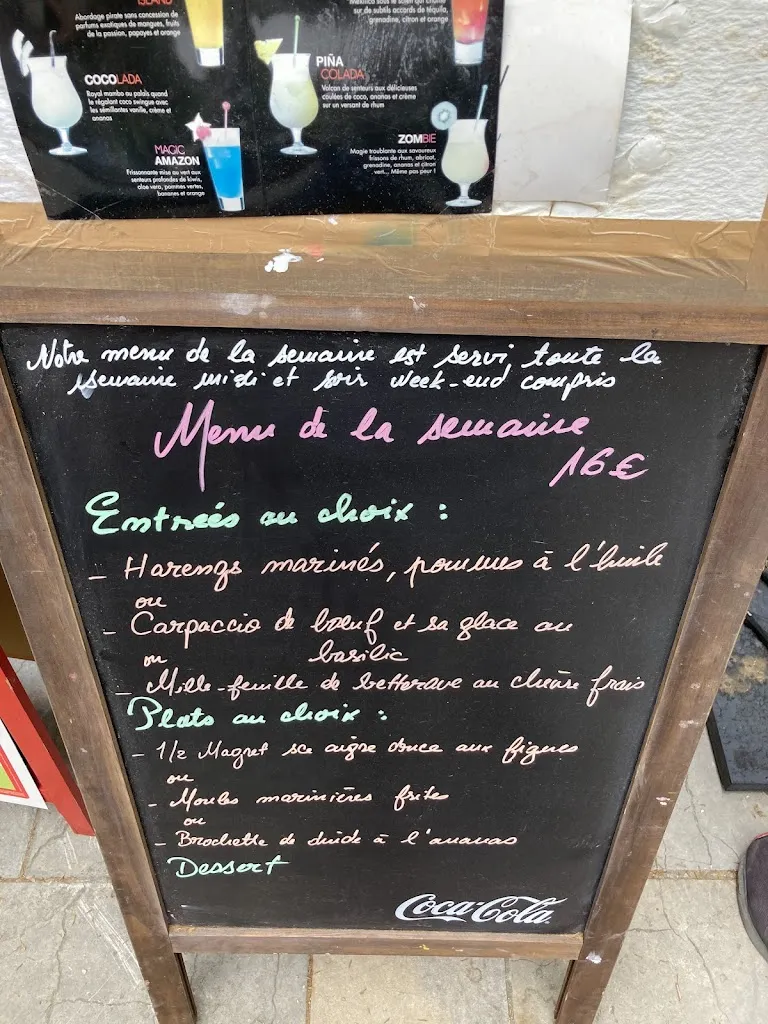 ISLAND
Abordage pirate sans concession de
parfums exotiques de mangues, fruits
de la passion, papayes et orange
sur de subtils accords de téquila,
grenadine, citron et orange
COCOLADA
Royal mambo au palais quand
le régalant coco swingue avec
les sémillantes vanille, crème et
ananas
PIÑA
COLADA
Volcan de senteurs aux délicieuses
coulées de coco, ananas et crème
sur un versant de rhum
MAGIC
AMAZON
Frissonnante mise au vert aux
senteurs profondes de kiwis,
aloe vera, pommes vertes,
bananes et orange
ZOMBIE
Magie troublante aux savoureux
frissons de rhum, abricot,
grenadine, ananas et citron
vert... Même pas peur !
Notre menu de la semaine est servi toute la
semaine midi et soir week-end compris
Menu de la semaine
16€
Entrées au choix :
- Harengs marinés, pommes à l'huile
ou
- Carpaccio de bœuf et sa glace au
basilic
ou
- Mille-feuille de betterave au chèvre frais
Plats au choix :
- 1/2 Magret sce aigre douce aux figues
ou
- Moules marinières frites
ou
- Brochette de dinde à l'ananas
Dessert
Coca-Cola